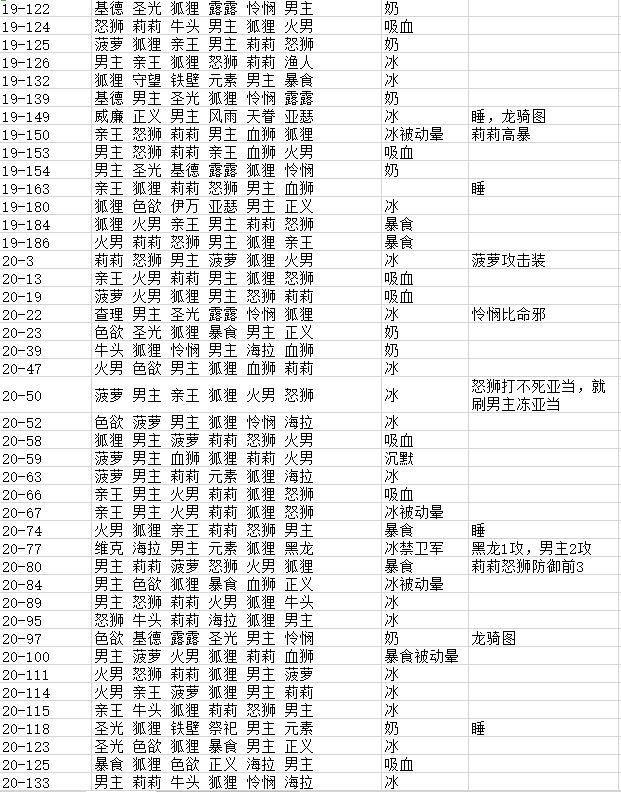 19-122 基德 圣光 狐狸 露露 怜悯 男主 奶
19-124 怒狮 莉莉 牛头 男主 狐狸 火男 吸血
19-125 菠萝 狐狸 亲王 男主 莉莉 怒狮 奶
19-126 男主 亲王 狐狸 怒狮 莉莉 渔人 冰
19-132 狐狸 守望 铁壁 元素 男主 暴食 冰
19-139 基德 男主 圣光 狐狸 怜悯 露露 奶
19-149 威廉 正义 男主 风雨 天眷 亚瑟 冰 睡，龙骑图
19-150 亲王 怒狮 莉莉 男主 血狮 狐狸 冰被动晕 莉莉高暴
19-153 男主 怒狮 莉莉 亲王 血狮 火男 吸血
19-154 男主 圣光 基德 露露 狐狸 怜悯 奶
19-163 亲王 狐狸 莉莉 怒狮 男主 血狮 睡
19-180 狐狸 色欲 伊万 亚瑟 男主 正义 冰
19-184 狐狸 火男 亲王 男主 莉莉 怒狮 暴食
19-186 火男 莉莉 怒狮 男主 狐狸 亲王 暴食
20-3 莉莉 怒狮 男主 菠萝 狐狸 火男 冰 菠萝攻击装
20-13 亲王 火男 莉莉 男主 狐狸 怒狮 吸血
20-19 菠萝 火男 狐狸 男主 怒狮 莉莉 吸血
20-22 查理 男主 圣光 露露 怜悯 狐狸 冰 怜悯比命邪
20-23 色欲 圣光 狐狸 暴食 男主 正义 奶
20-39 牛头 狐狸 怜悯 男主 海拉 血狮 奶
20-47 火男 色欲 男主 狐狸 血狮 莉莉 冰
20-50 菠萝 男主 亲王 狐狸 火男 怒狮 冰 怒狮打不死亚当，就
刷男主冻亚当
20-52 色欲 菠萝 男主 狐狸 怜悯 海拉 冰
20-58 狐狸 男主 菠萝 莉莉 怒狮 火男 吸血
20-59 菠萝 男主 血狮 狐狸 莉莉 火男 沉默
20-63 菠萝 男主 莉莉 元素 狐狸 海拉 冰
20-66 亲王 男主 火男 莉莉 狐狸 怒狮 吸血
20-67 亲王 男主 火男 莉莉 狐狸 怒狮 冰被动晕
20-74 火男 狐狸 亲王 莉莉 怒狮 男主 暴食 睡
20-77 维克 海拉 男主 元素 狐狸 黑龙 冰禁卫军 黑龙1攻，男主2攻
20-80 男主 莉莉 菠萝 怒狮 火男 狐狸 暴食 莉莉怒狮防御前3
20-84 男主 色欲 狐狸 暴食 血狮 正义 冰被动晕
20-89 男主 怒狮 莉莉 火男 狐狸 牛头 冰
20-95 怒狮 牛头 莉莉 海拉 狐狸 男主 冰
20-97 色欲 基德 露露 圣光 男主 怜悯 奶 龙骑图
20-100 男主 菠萝 火男 狐狸 莉莉 血狮 暴食被动晕
20-111 火男 怒狮 莉莉 狐狸 男主 菠萝 冰
20-114 火男 亲王 菠萝 狐狸 男主 莉莉 冰
20-115 亲王 牛头 狐狸 莉莉 怒狮 男主 冰
20-118 圣光 狐狸 铁壁 祭祀 男主 元素 奶 睡
20-123 圣光 色欲 狐狸 暴食 男主 正义 冰
20-125 暴食 狐狸 色欲 正义 海拉 男主 吸血
20-133 男主 莉莉 牛头 狐狸 怜悯 海拉 冰